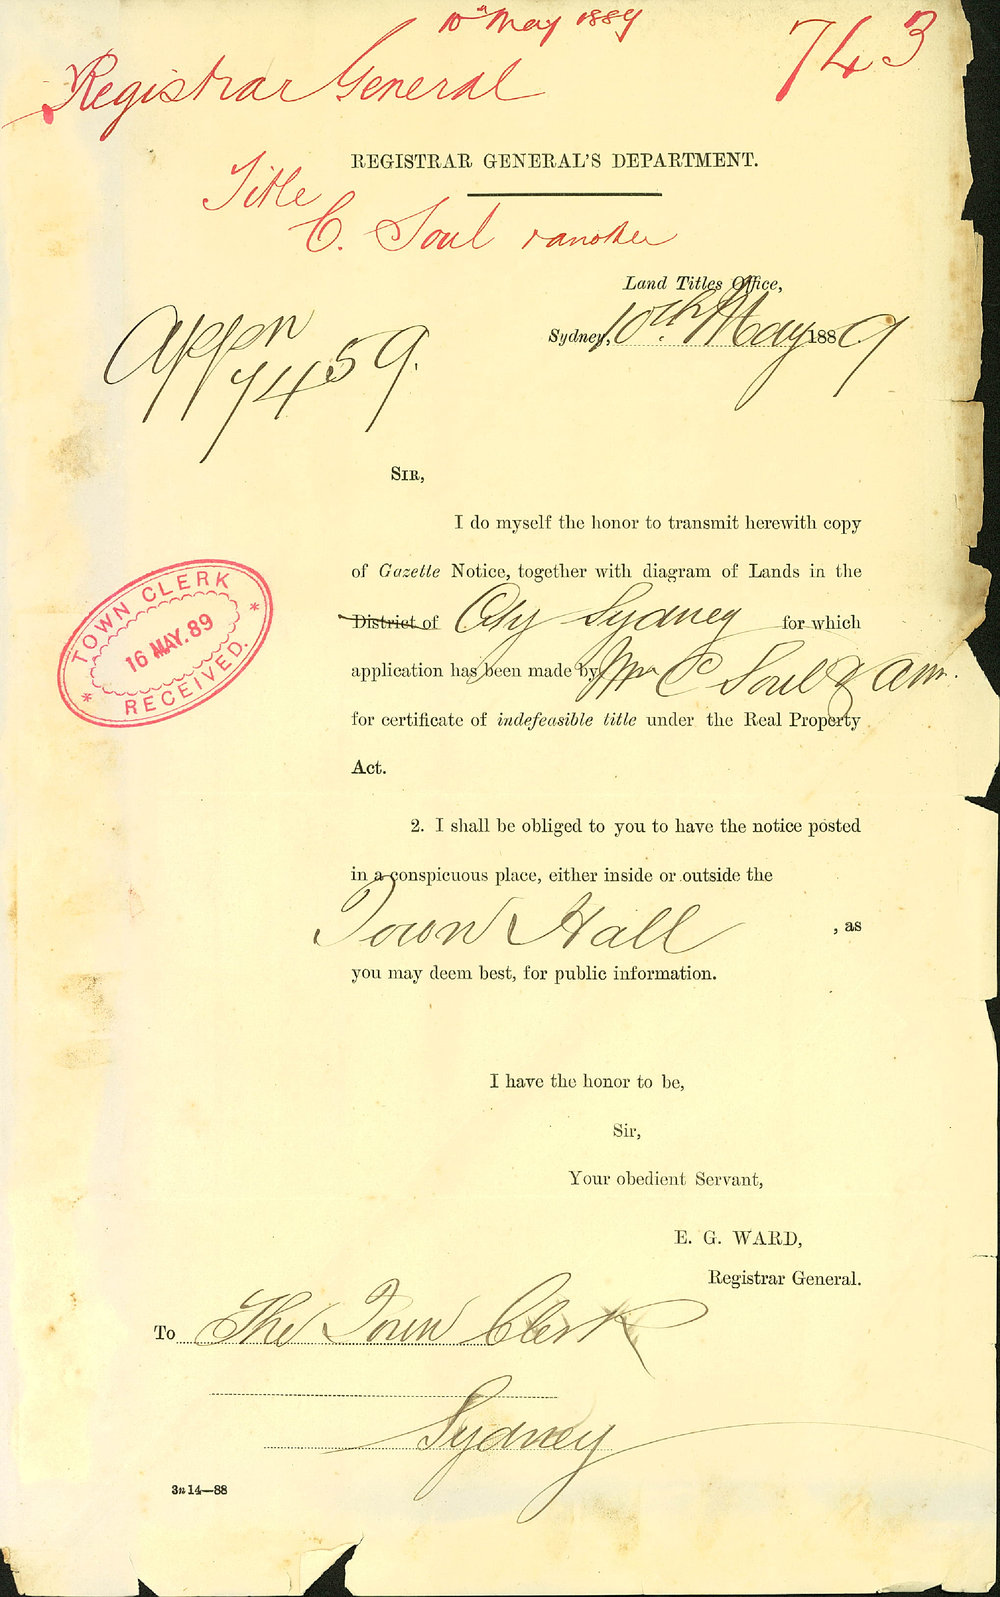 10th May 1889
743
Registrar General
REGISTRAR GENERAL'S DEPARTMENT.
Title
C. Soul & another
Land Titles Office,
Sydney, 10th May 1889
Appn
7459.
SIR,
I do myself the honor to transmit herewith copy
of Gazette Notice, together with diagram of Lands in the
District of City Sydney for which
application has been made by Mr C Soul & anr.
for certificate of indefeasible title under the Real Property
Act.
TOWN CLERK
16 MAY. 89
RECEIVED.
2. I shall be obliged to you to have the notice posted
in a conspicuous place, either inside or outside the
Town Hall , as
you may deem best, for public information.
I have the honor to be,
Sir,
Your obedient Servant,
E. G. WARD,
Registrar General.
To The Town Clerk
Sydney
3n 14—88